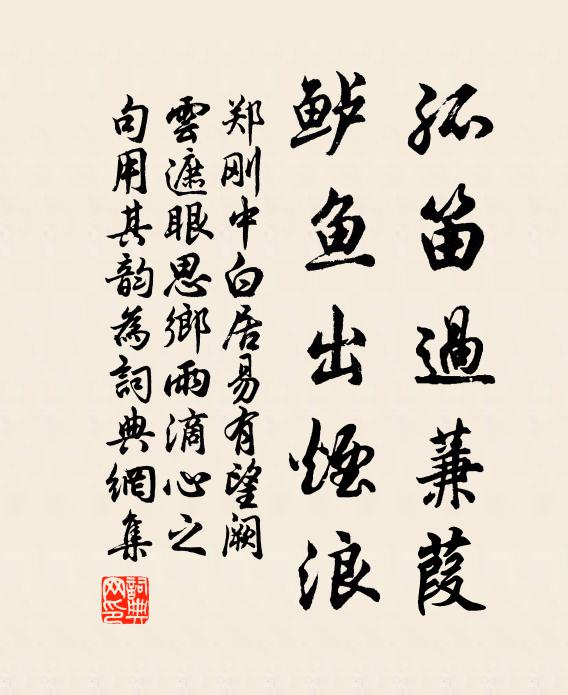 孤笛過蒹葭
鲈鱼出煙浪
郑刚中白居易有望阙
雲遮眼思鄉雨滴心之
句用其韵為詞典網集
詞典网印